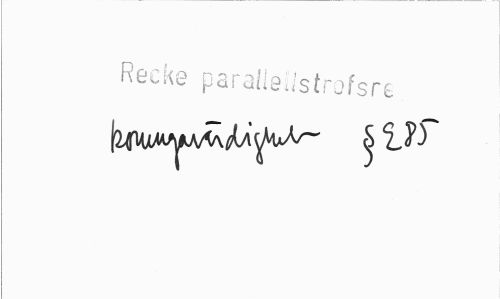 Recke parallellstrofsre
konungavärdighet § 285